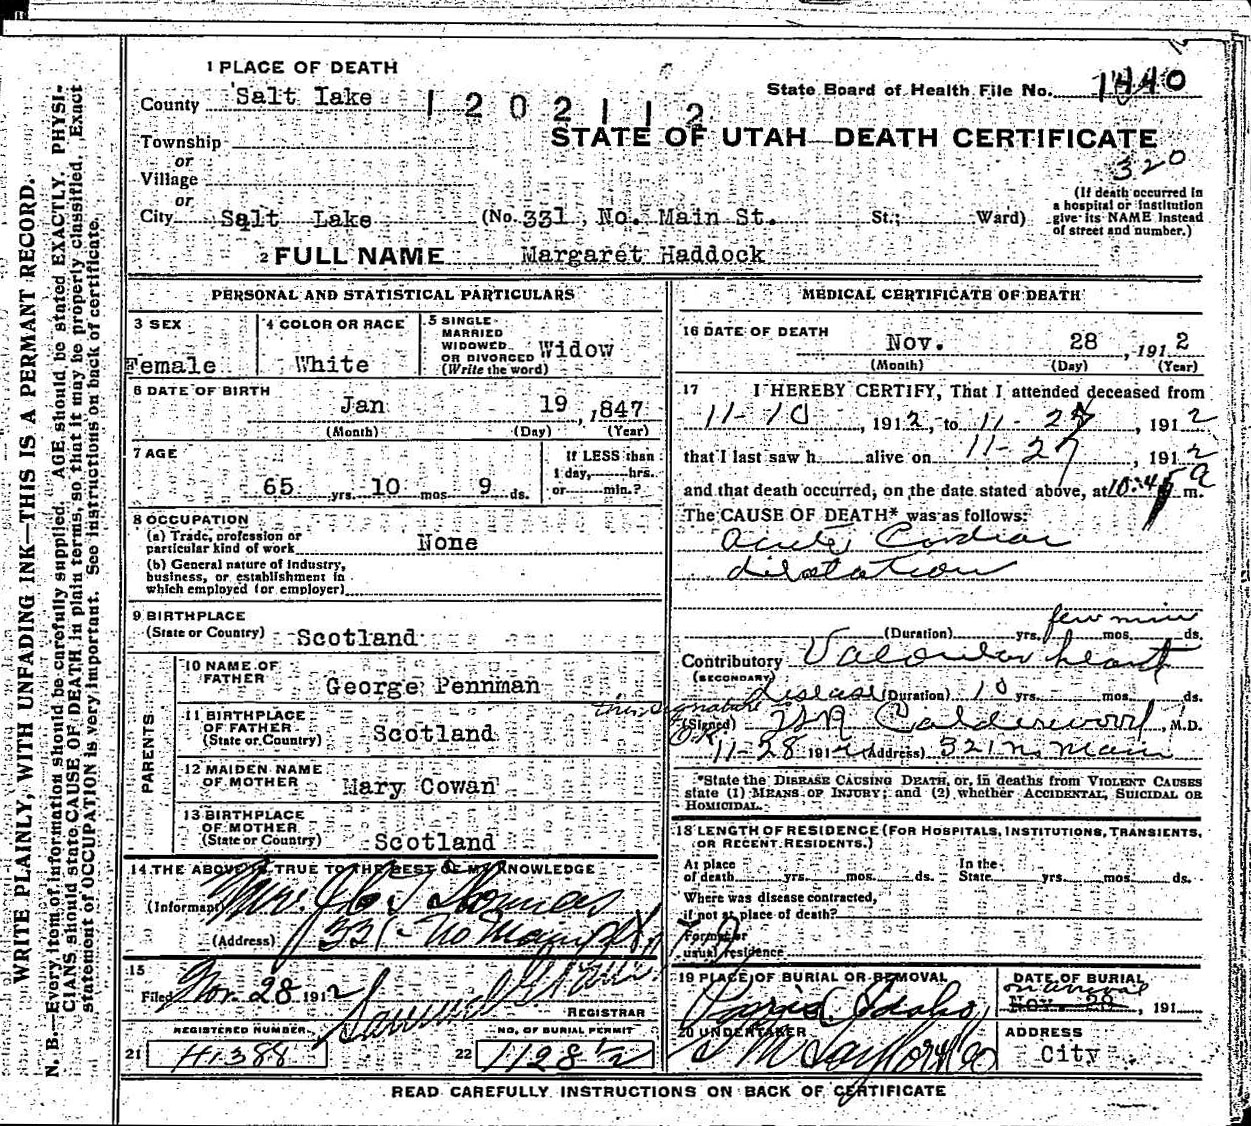 1 PLACE OF DEATH
County Salt Lake 1202112
State Board of Health File No. 1440
STATE OF UTAH—DEATH CERTIFICATE
320
Township
or
Village
or
City Salt Lake (No. 331 No. Main St. St.; Ward)
(If death occurred in
a hospital or institution
give its NAME instead
of street and number.)
2 FULL NAME Margaret Haddock
PERSONAL AND STATISTICAL PARTICULARS
3 SEX
Female
4 COLOR OR RACE
White
5 SINGLE
MARRIED
WIDOWED
OR DIVORCED
(Write the word)
Widow
6 DATE OF BIRTH
Jan 19, 1847
(Month) (Day) (Year)
7 AGE
65 yrs. 10 mos 9 ds.
If LESS than
1 day, hrs.
or min.?
8 OCCUPATION
(a) Trade, profession or
particular kind of work None
(b) General nature of industry,
business, or establishment in
which employed (or employer)
9 BIRTHPLACE
(State or Country) Scotland
PARENTS
10 NAME OF
FATHER
George Pennman
11 BIRTHPLACE
OF FATHER
(State or Country) Scotland
12 MAIDEN NAME
OF MOTHER Mary Cowan
13 BIRTHPLACE
OF MOTHER
(State or Country) Scotland
14 THE ABOVE IS TRUE TO THE BEST OF MY KNOWLEDGE
(Informant) Mrs. J C Thomas
(Address) 331 No Main St
15
Filed Nov. 28 1912
REGISTRAR
REGISTERED NUMBER.
21 H1388
NO. OF BURIAL PERMIT
22 1128 1/2
MEDICAL CERTIFICATE OF DEATH
16 DATE OF DEATH
Nov. 28, 1912
(Month) (Day) (Year)
17 I HEREBY CERTIFY, That I attended deceased from
11-10, 1912, to 11-27, 1912
that I last saw h alive on 11-27, 1912
and that death occurred, on the date stated above, at 10:45 a m.
The CAUSE OF DEATH* was as follows:
Acute Cardiac
dilatation
few min
(Duration) yrs. mos. ds.
Contributory Valvular heart
(SECONDARY)
disease (Duration) 10 yrs. mos. ds.
this signature
O.K.
(Signed) Calderwood, M.D.
11-28 1912 (Address) 321 No Main
*State the DISEASE CAUSING DEATH, or, in deaths from VIOLENT CAUSES
state (1) MEANS OF INJURY; and (2) whether ACCIDENTAL, SUICIDAL OR
HOMICIDAL.
18 LENGTH OF RESIDENCE (FOR HOSPITALS, INSTITUTIONS, TRANSIENTS,
OR RECENT RESIDENTS.)
At place
of death yrs. mos. ds.
In the
State yrs. mos. ds.
Where was disease contracted,
if not at place of death?
Former or
usual residence
19 PLACE OF BURIAL OR REMOVAL
Paris Idaho
DATE OF BURIAL
Nov. 28, 191
20 UNDERTAKER
S M Taylor & Co
ADDRESS
City
READ CAREFULLY INSTRUCTIONS ON BACK OF CERTIFICATE
WRITE PLAINLY, WITH UNFADING INK—THIS IS A PERMANT RECORD.
N. B.—Every item of information should be carefully supplied. AGE should be stated EXACTLY. PHYSI-
CIANS should state CAUSE OF DEATH in plain terms, so that it may be properly classified. Exact
statement of OCCUPATION is very important. See instructions on back of certificate.